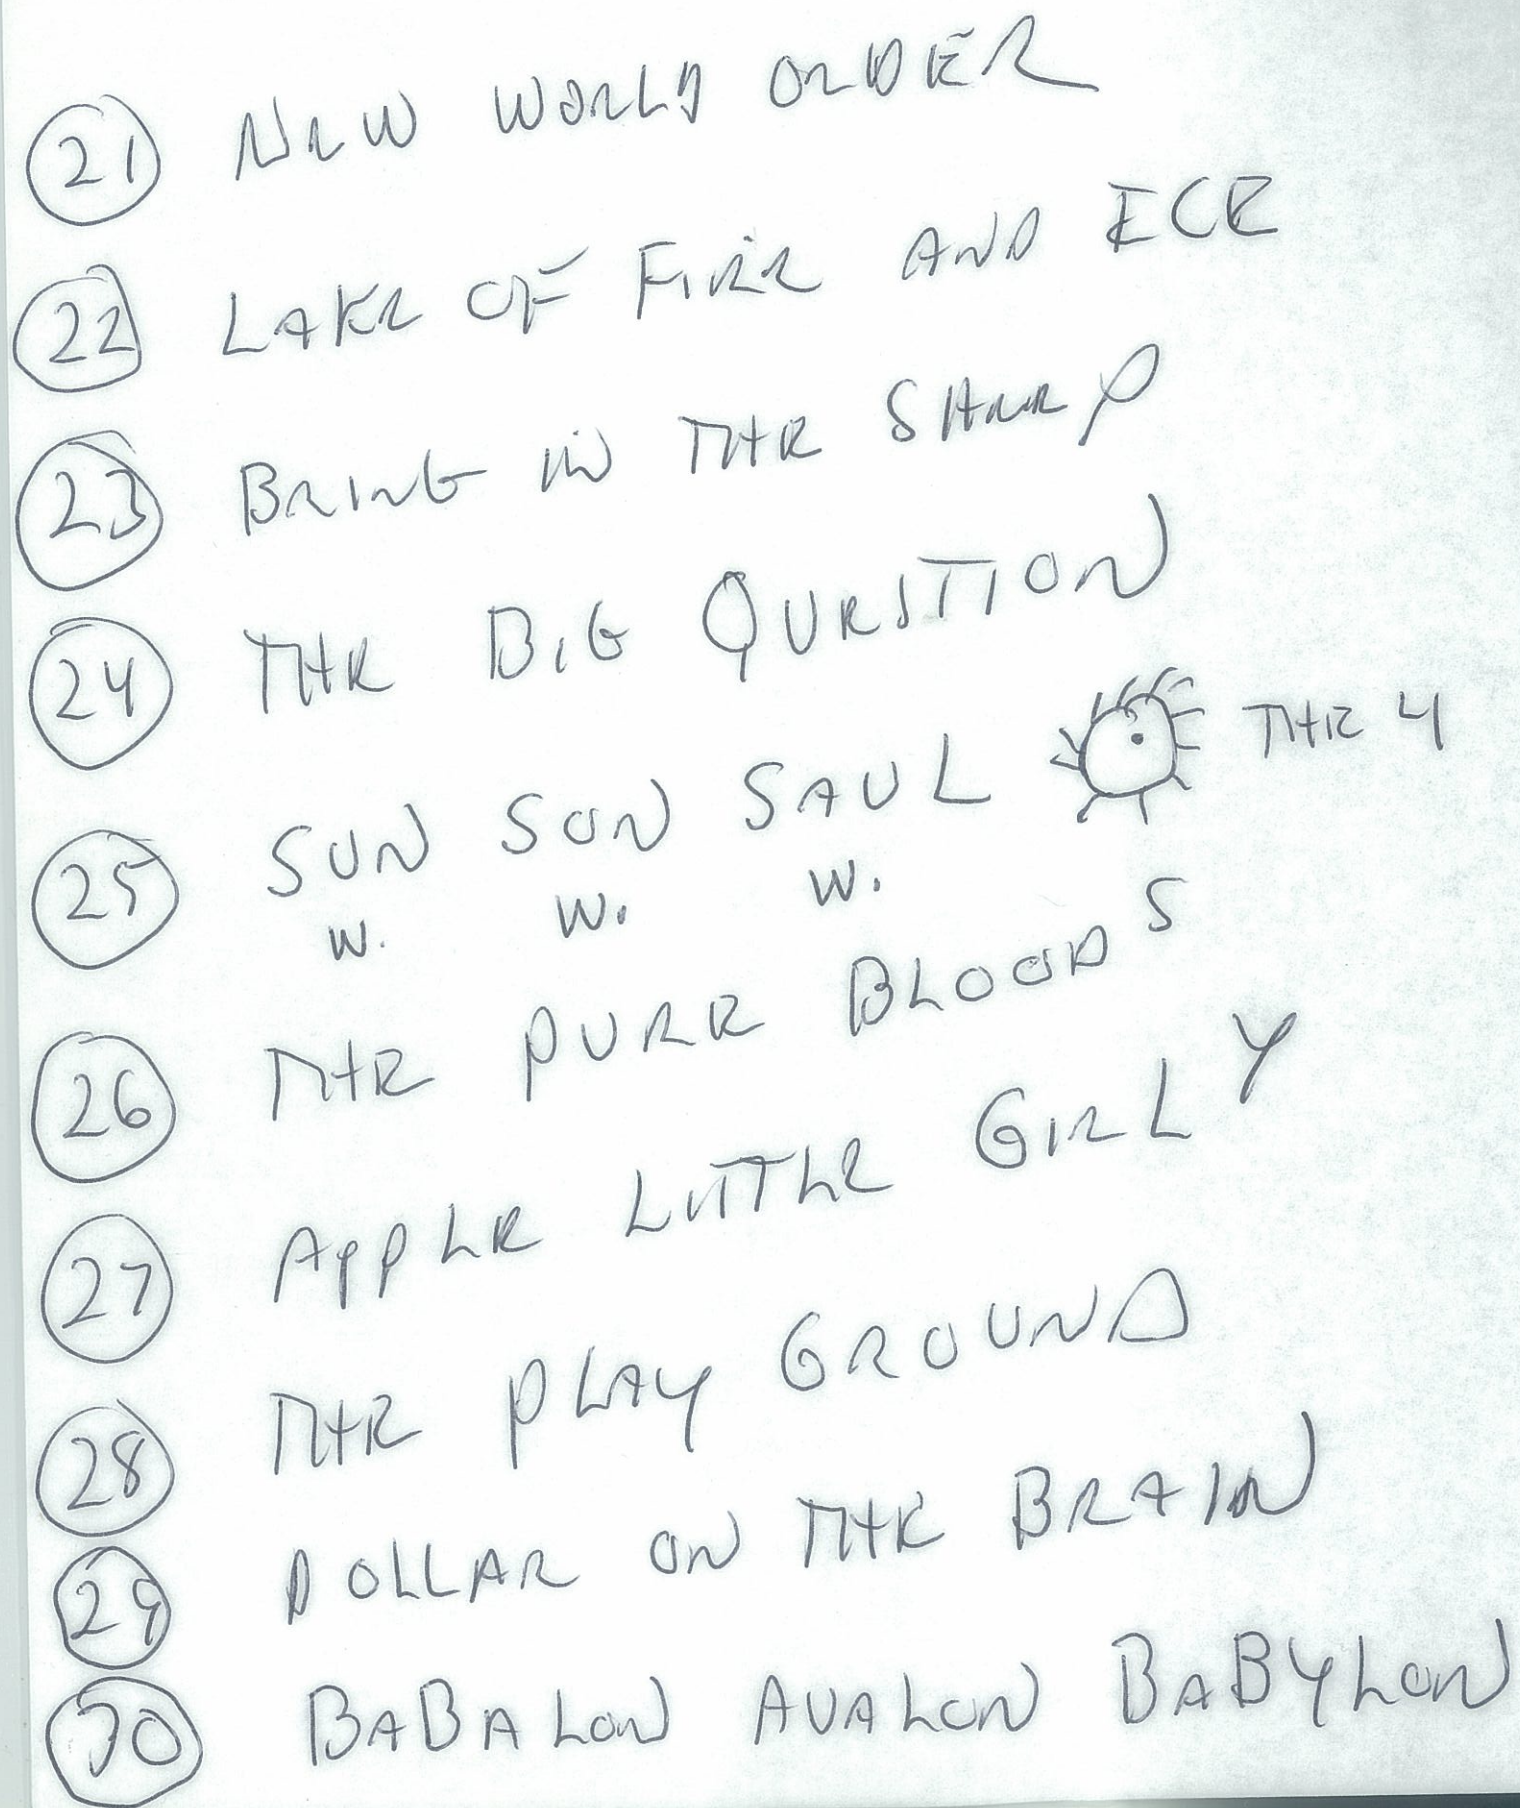 21 NEW WORLD ORDER
22 LAKE OF FIRE AND ICE
23 BRING IN THE SHEEP
24 THE BIG QUESTION
25 SUN SON SAUL THE 4
W. W. W.
26 THE PURE BLOODS
27 APPLE LITTLE GIRLY
28 THE PLAY GROUND
29 DOLLAR ON THE BRAIN
30 BABALON AVALON BABYLON